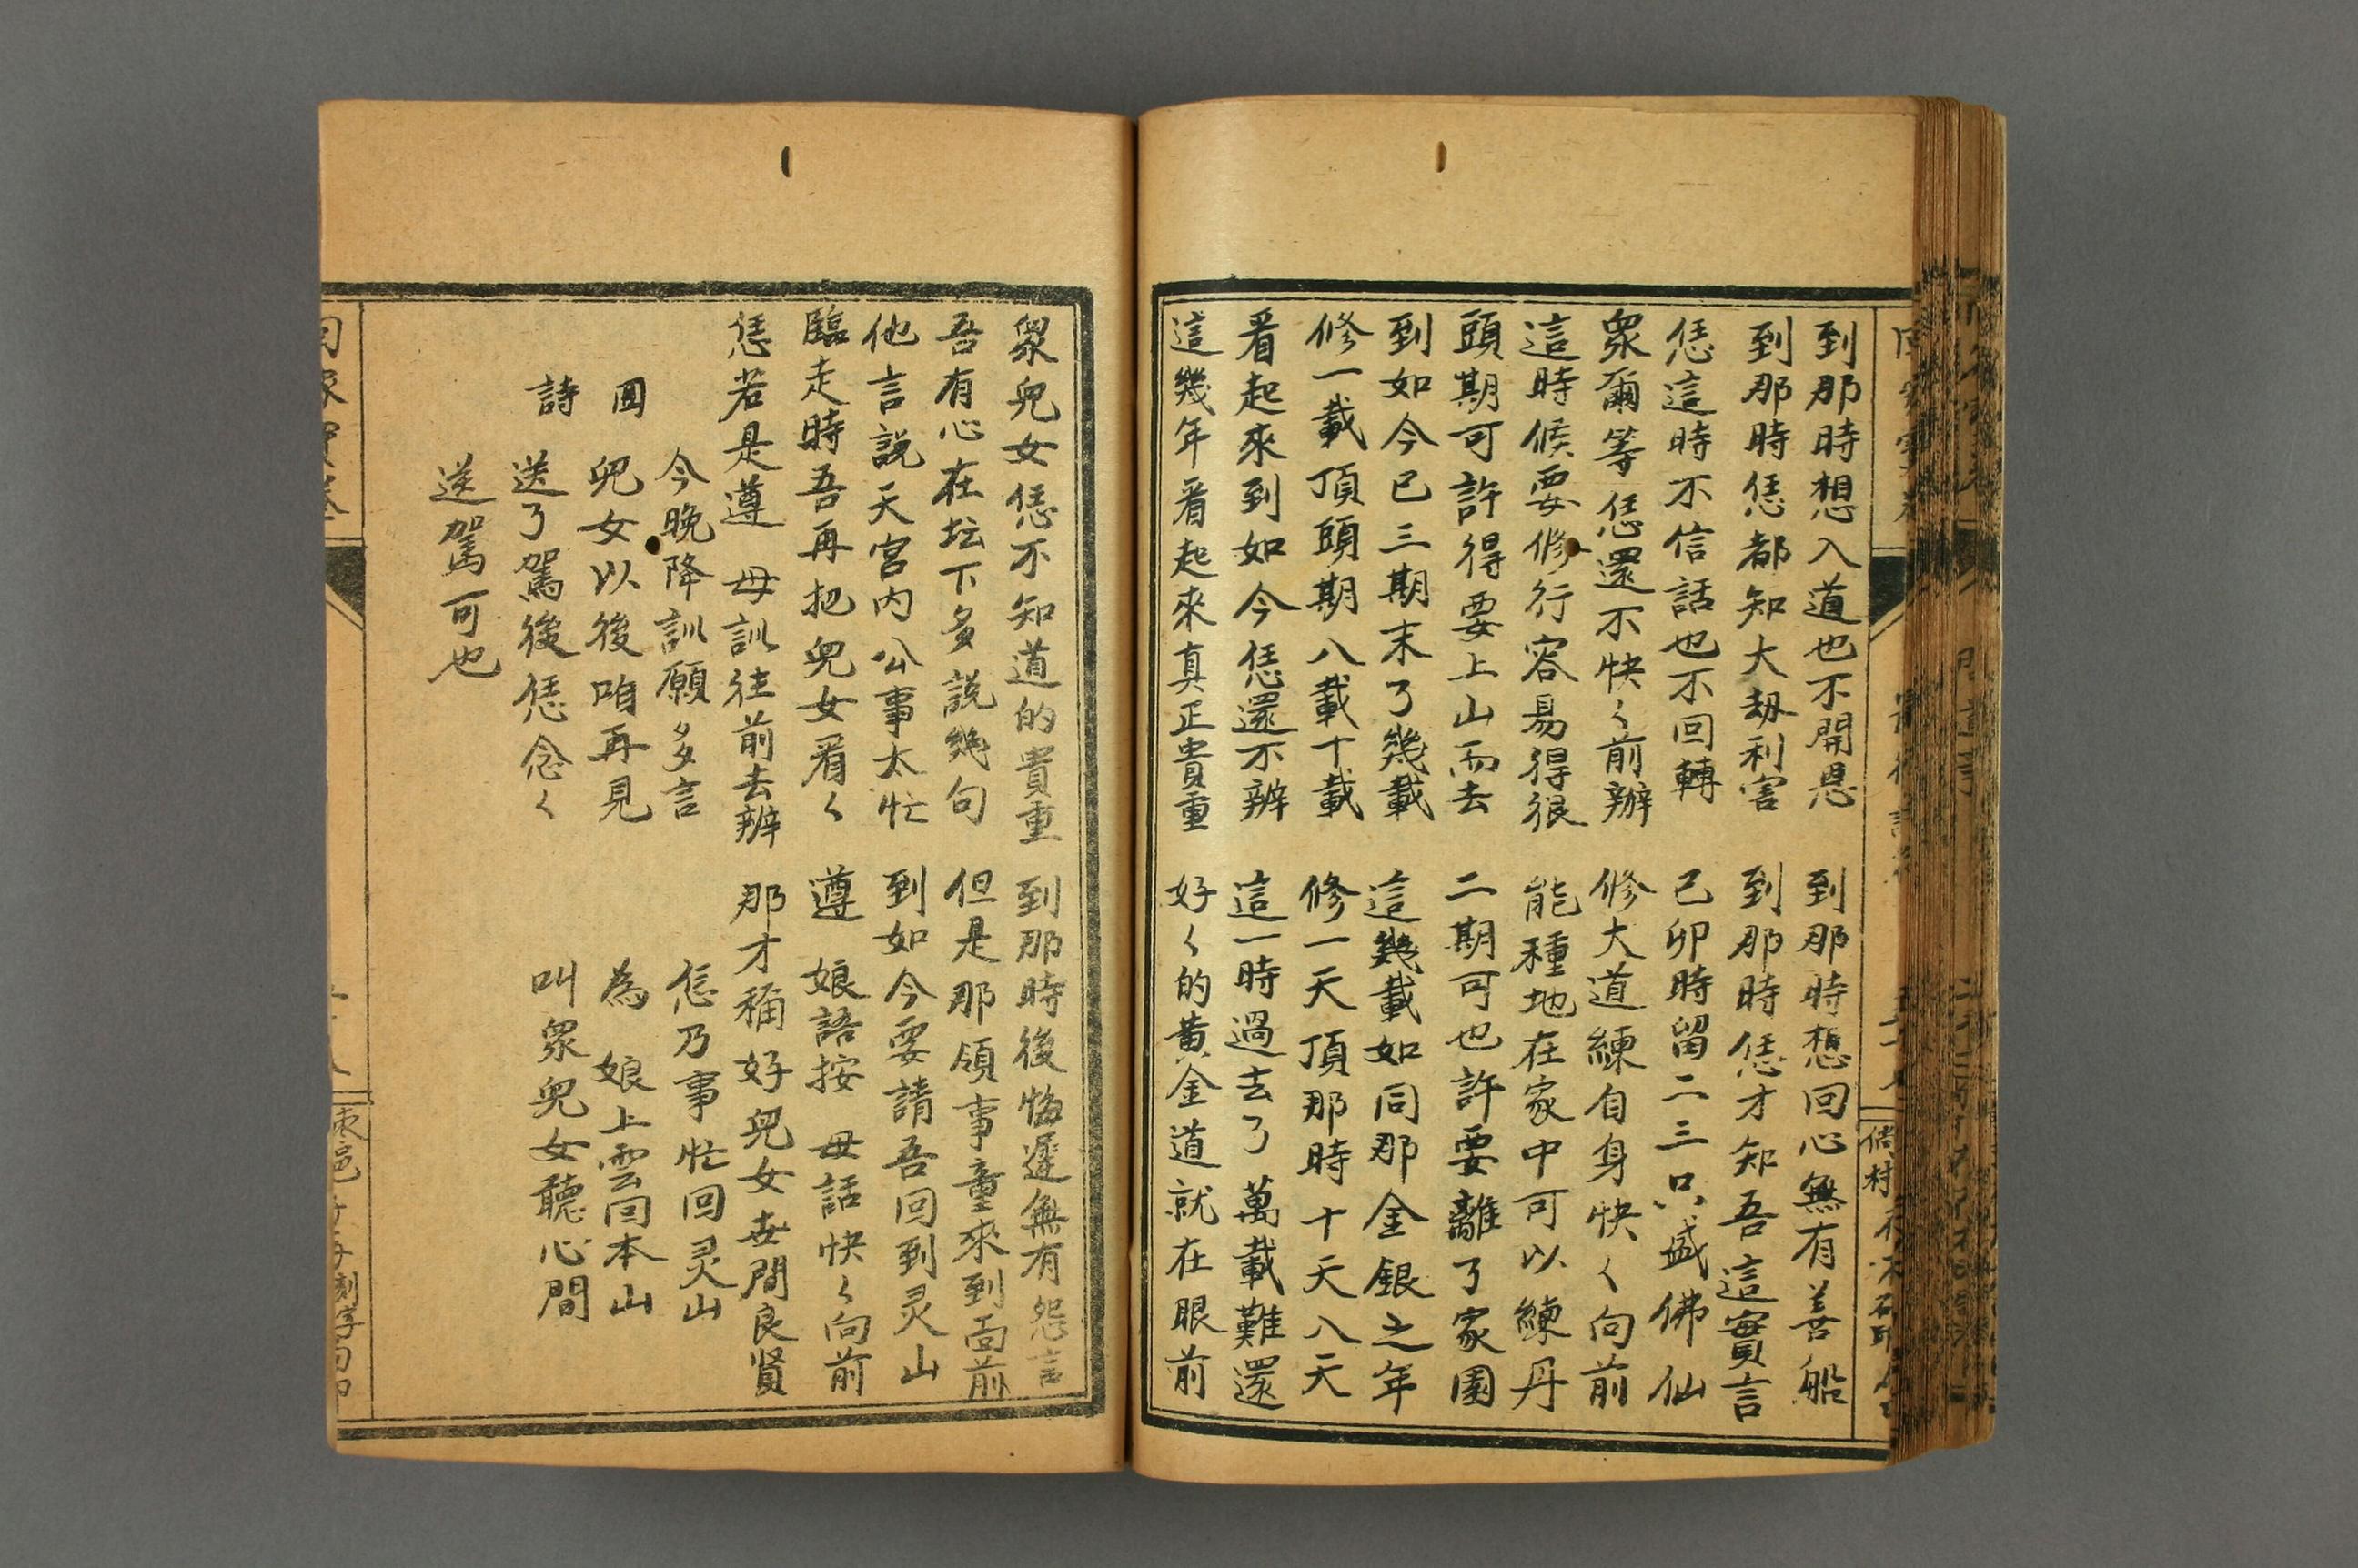 到那時想入道也不開恩　到那時想回心無有善船
到那時恁都知大刼利害　到那時恁才知吾這實言
恁這時不信話也不回轉　己卯時留二三只盛佛仙
衆爾等恁還不快〱前辦　修大道練自身快〱向前
這時候要修行容易得很　能種地在家中可以練丹
頭期可許得要上山而去　二期可也許要離了家園
到如今已三期末了幾載　這幾載如同那金銀之年
修一載頂頭期八載十載　修一天頂那時十天八天
看起來到如今恁還不辦　這一時過去了萬載難還
這幾年看起來真正貴重　好〱的黄金道就在眼前
衆兒女恁不知道的貴重　到那時後悔遲無有怨言
吾有心在坛下多説幾句　但是那領事童來到面前
他言説天宮内公事太忙　到如今要請吾回到灵山
臨走時吾再把兒女看〱　遵　娘語按　母話快〱向前
恁若是遵　母訓往前去辦　那才稱好兒女世間良賢
今晚降訓願多言　怎乃事忙回灵山
囬　兒女以後咱再見　為　娘上雲囬本山
詩　送了駕後恁念〱　叫衆兒女聽心間
送駕可也